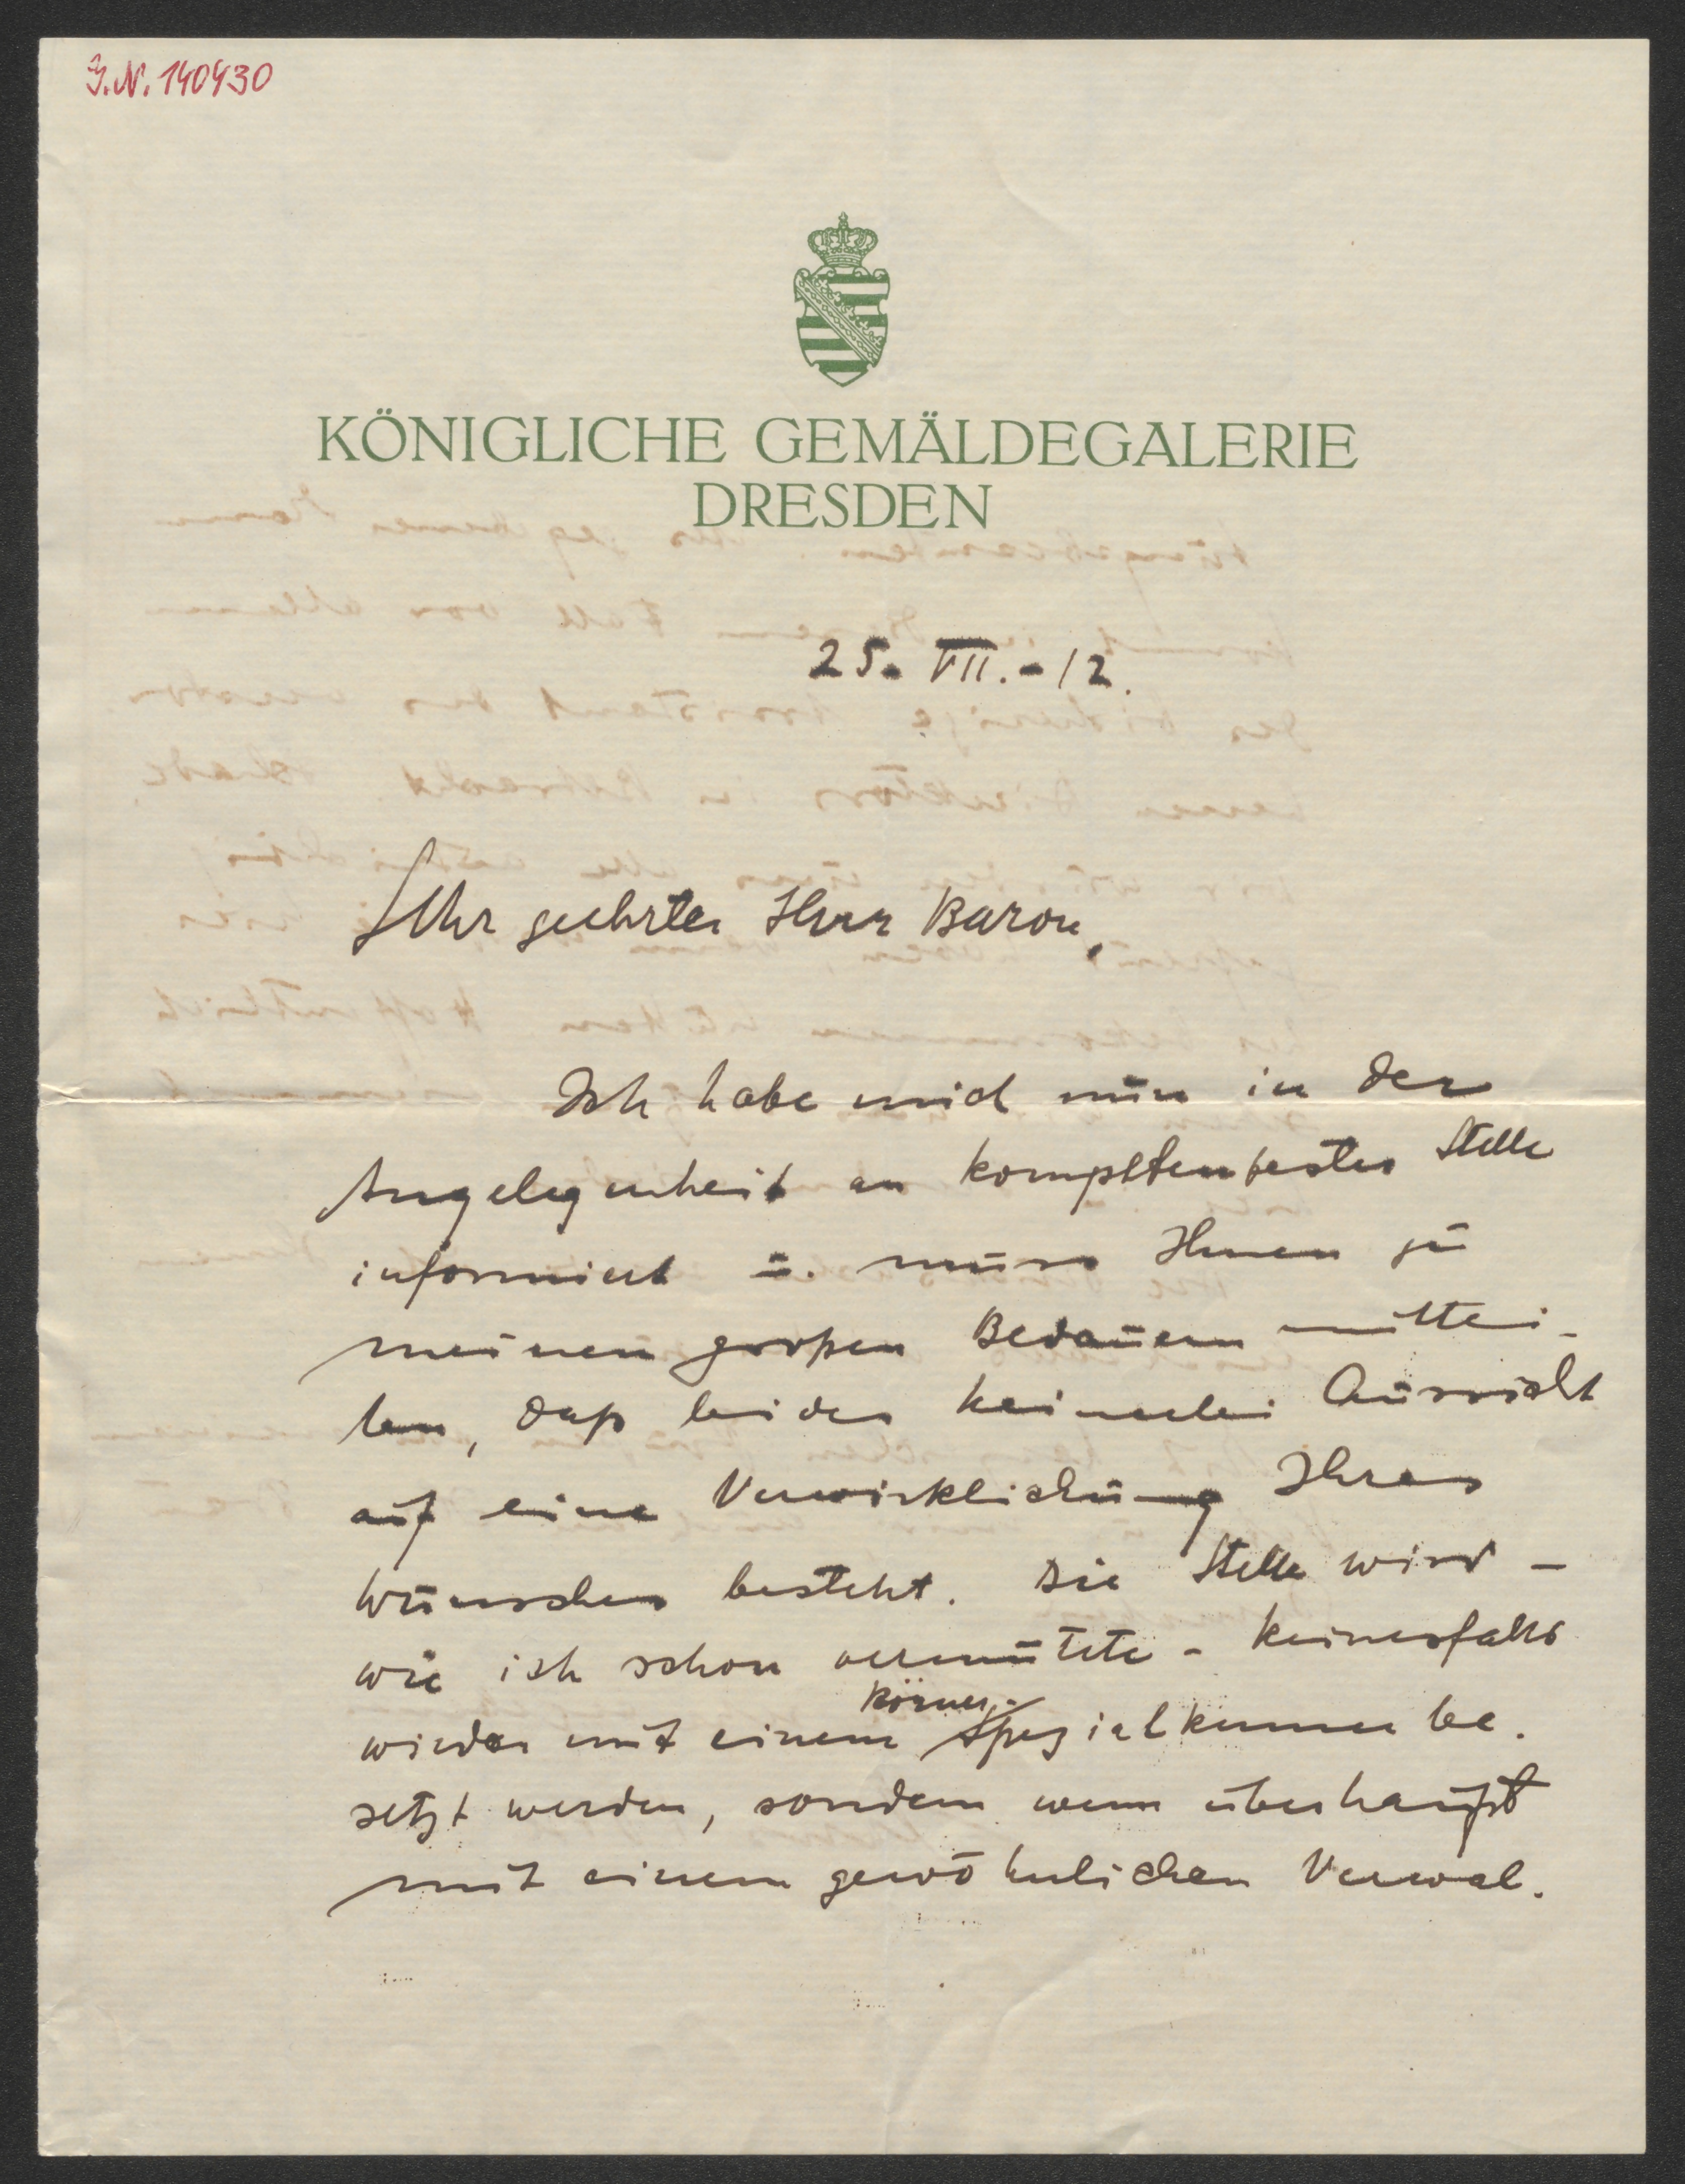 I.N. 140430
KÖNIGLICHE GEMÄLDEGALERIE
DRESDEN
25. VII. - 12.
Sehr geehrter Herr Baron,
Ich habe mich nun in der
Angelegenheit an kompetentester Stelle
informiert u. muss Ihnen zu
meinem großen Bedauern mittei-
len, daß leider keinerlei Aussicht
auf eine Verwirklichung Ihres
Wunsches besteht. Die Stelle wird -
wie ich schon vermutete - keinesfalls
wieder mit einem Körner-Spezialkenner be-
setzt werden, sondern wenn überhaupt
mit einem gewöhnlichen Verwal-